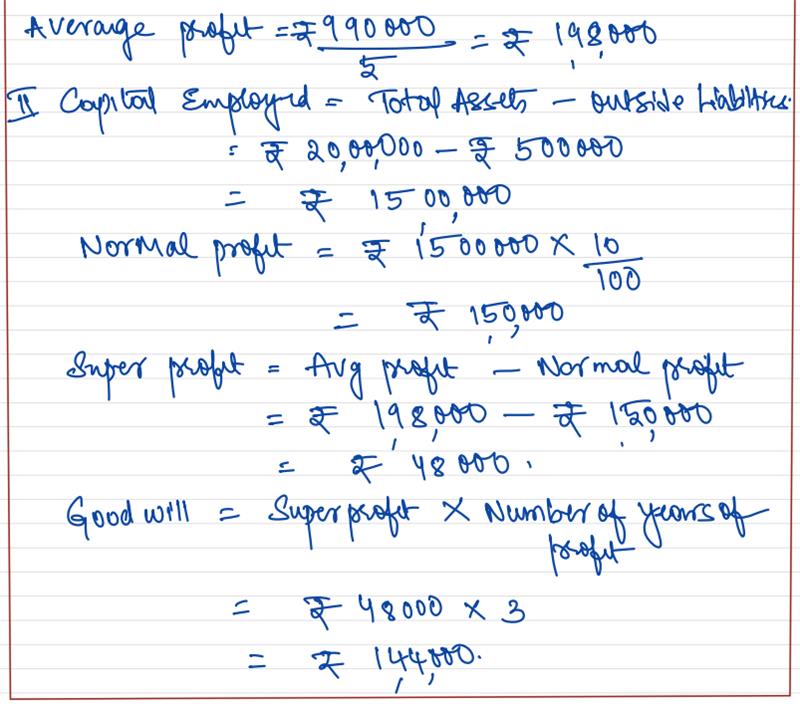 Average profit = ₹ 990000 / 5 = ₹ 1,98,000
II Capital Employed = Total Assets – outside Liabilities.
= ₹ 20,00,000 – ₹ 500000
= ₹ 15,00,000
Normal profit = ₹ 1500000 × 10/100
= ₹ 1,50,000
Super profit = Avg profit – Normal profit
= ₹ 1,98,000 – ₹ 1,50,000
= ₹ 48000.
Good will = Super profit × Number of years of
profit
= ₹ 48000 × 3
= ₹ 1,44,000.